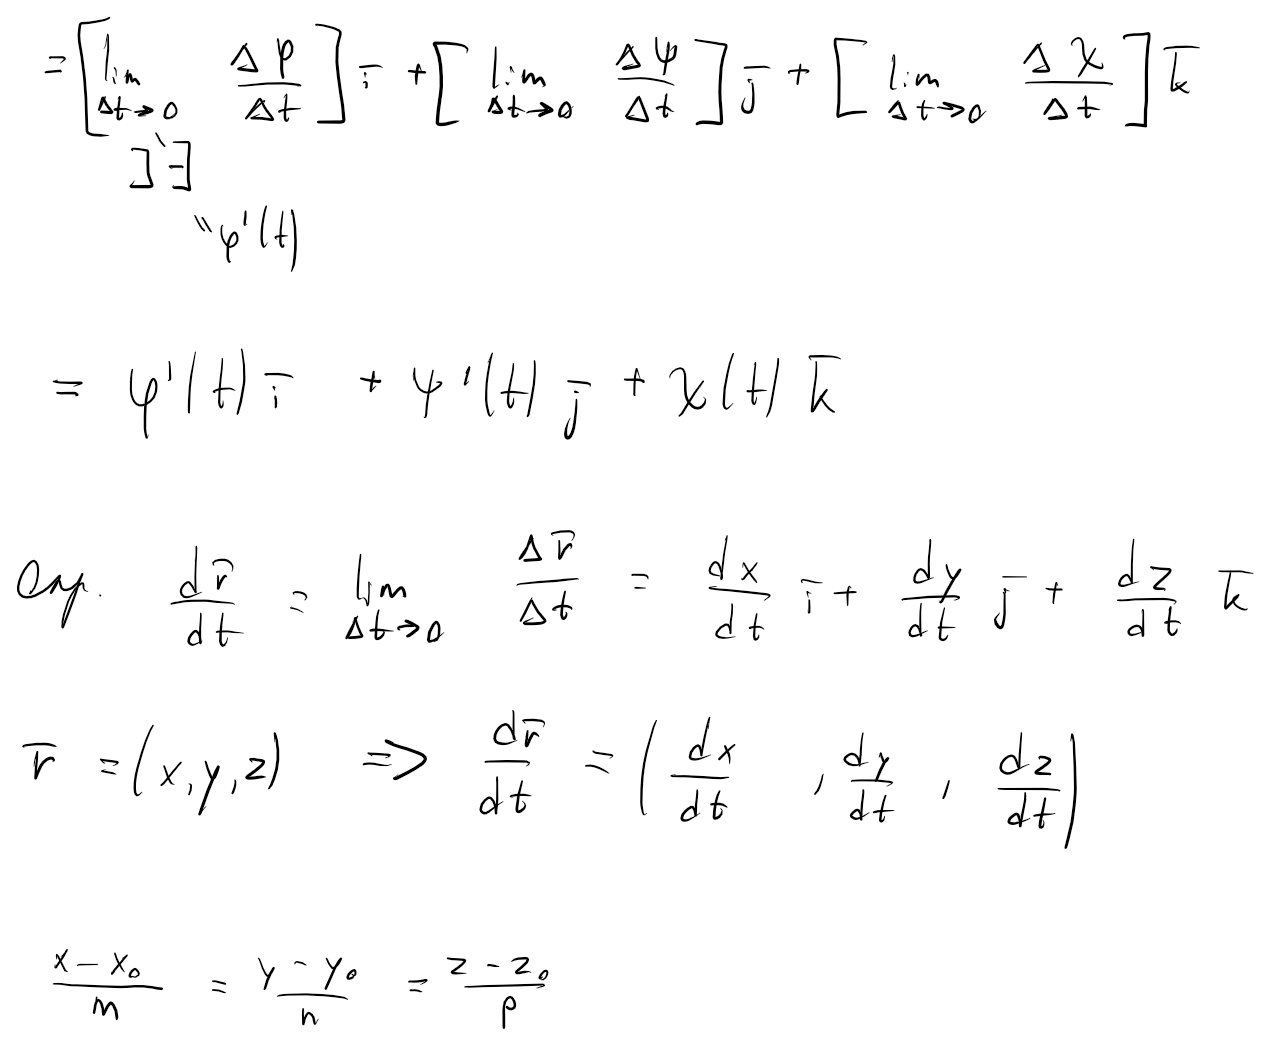 = [lim Δt→0 Δφ/Δt] i̅ + [lim Δt→0 Δψ/Δt] j̅ + [lim Δt→0 Δχ/Δt] k̅
"φ'(t)
= φ'(t) i̅ + ψ'(t) j̅ + χ(t) k̅
Опр. dr̅/dt = lim Δt→0 Δr̅/Δt = dx/dt i̅ + dy/dt j̅ + dz/dt k̅
r̅ = (x, y, z) => dr̅/dt = (dx/dt, dy/dt, dz/dt)
x - x₀/m = y - y₀/n = z - z₀/p